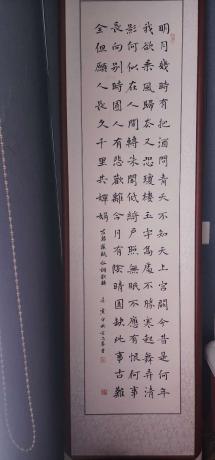 明月幾時有把酒問青天不知天上宮闕今昔是何年
我欲乘風歸去又恐瓊樓玉宇高處不勝寒起舞弄清
影何似在人間轉朱閣低綺戶照無眠不應有恨何事
長向别時圓人有悲歡離合月有陰晴圓缺此事古難
全但願人長久千里共嬋娟
蘇軾水調歌頭